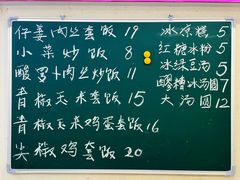 仔姜肉丝套饭 19
小菜炒饭 8
酸萝卜肉丝炒饭 11
青椒玉米套饭 15
青椒玉米鸡蛋套饭 16
尖椒鸡套饭 20
冰凉糕 5
红糖冰粉 5
冰绿豆汤 5
醪糟冰汤圆 7
大汤圆 12